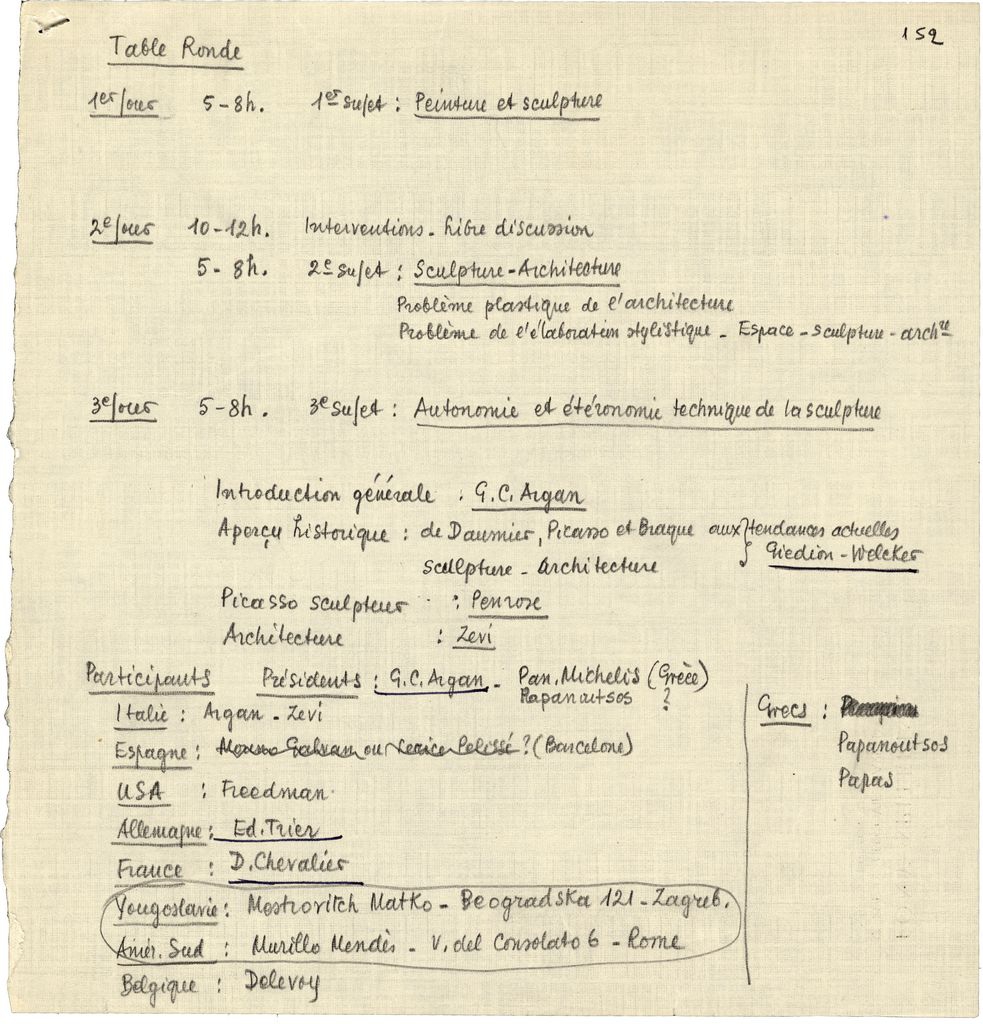 152
Table Ronde
1er jour 5-8h. 1er sujet : Peinture et sculpture
2e jour 10-12h. Interventions - Libre discussion
5-8h. 2e sujet : Sculpture-Architecture
Problème plastique de l'architecture
Problème de l'élaboration stylistique - Espace - sculpture - archre
3e jour 5-8h. 3e sujet : Autonomie et étéronomie technique de la sculpture
Introduction générale : G.C. Argan
Aperçu historique : de Daumier, Picasso et Braque aux tendances actuelles
sculpture - architecture } Giedion-Welcker
Picasso sculpteur : Penrose
Architecture : Zevi
Participants Présidents : G.C. Argan - Pan. Michelis (Grèce)
Papanoutsos ?
Italie : Argan - Zevi
Espagne : ou ? (Barcelone)
USA : Freedman
Allemagne : Ed. Trier
France : D. Chevalier
Yougoslavie : Mestrovitch Matko - Beogradska 121 - Zagreb.
Amér. Sud : Murillo Mendès - V. del Consolato 6 - Rome
Belgique : Delevoy
Grecs :
Papanoutsos
Papas